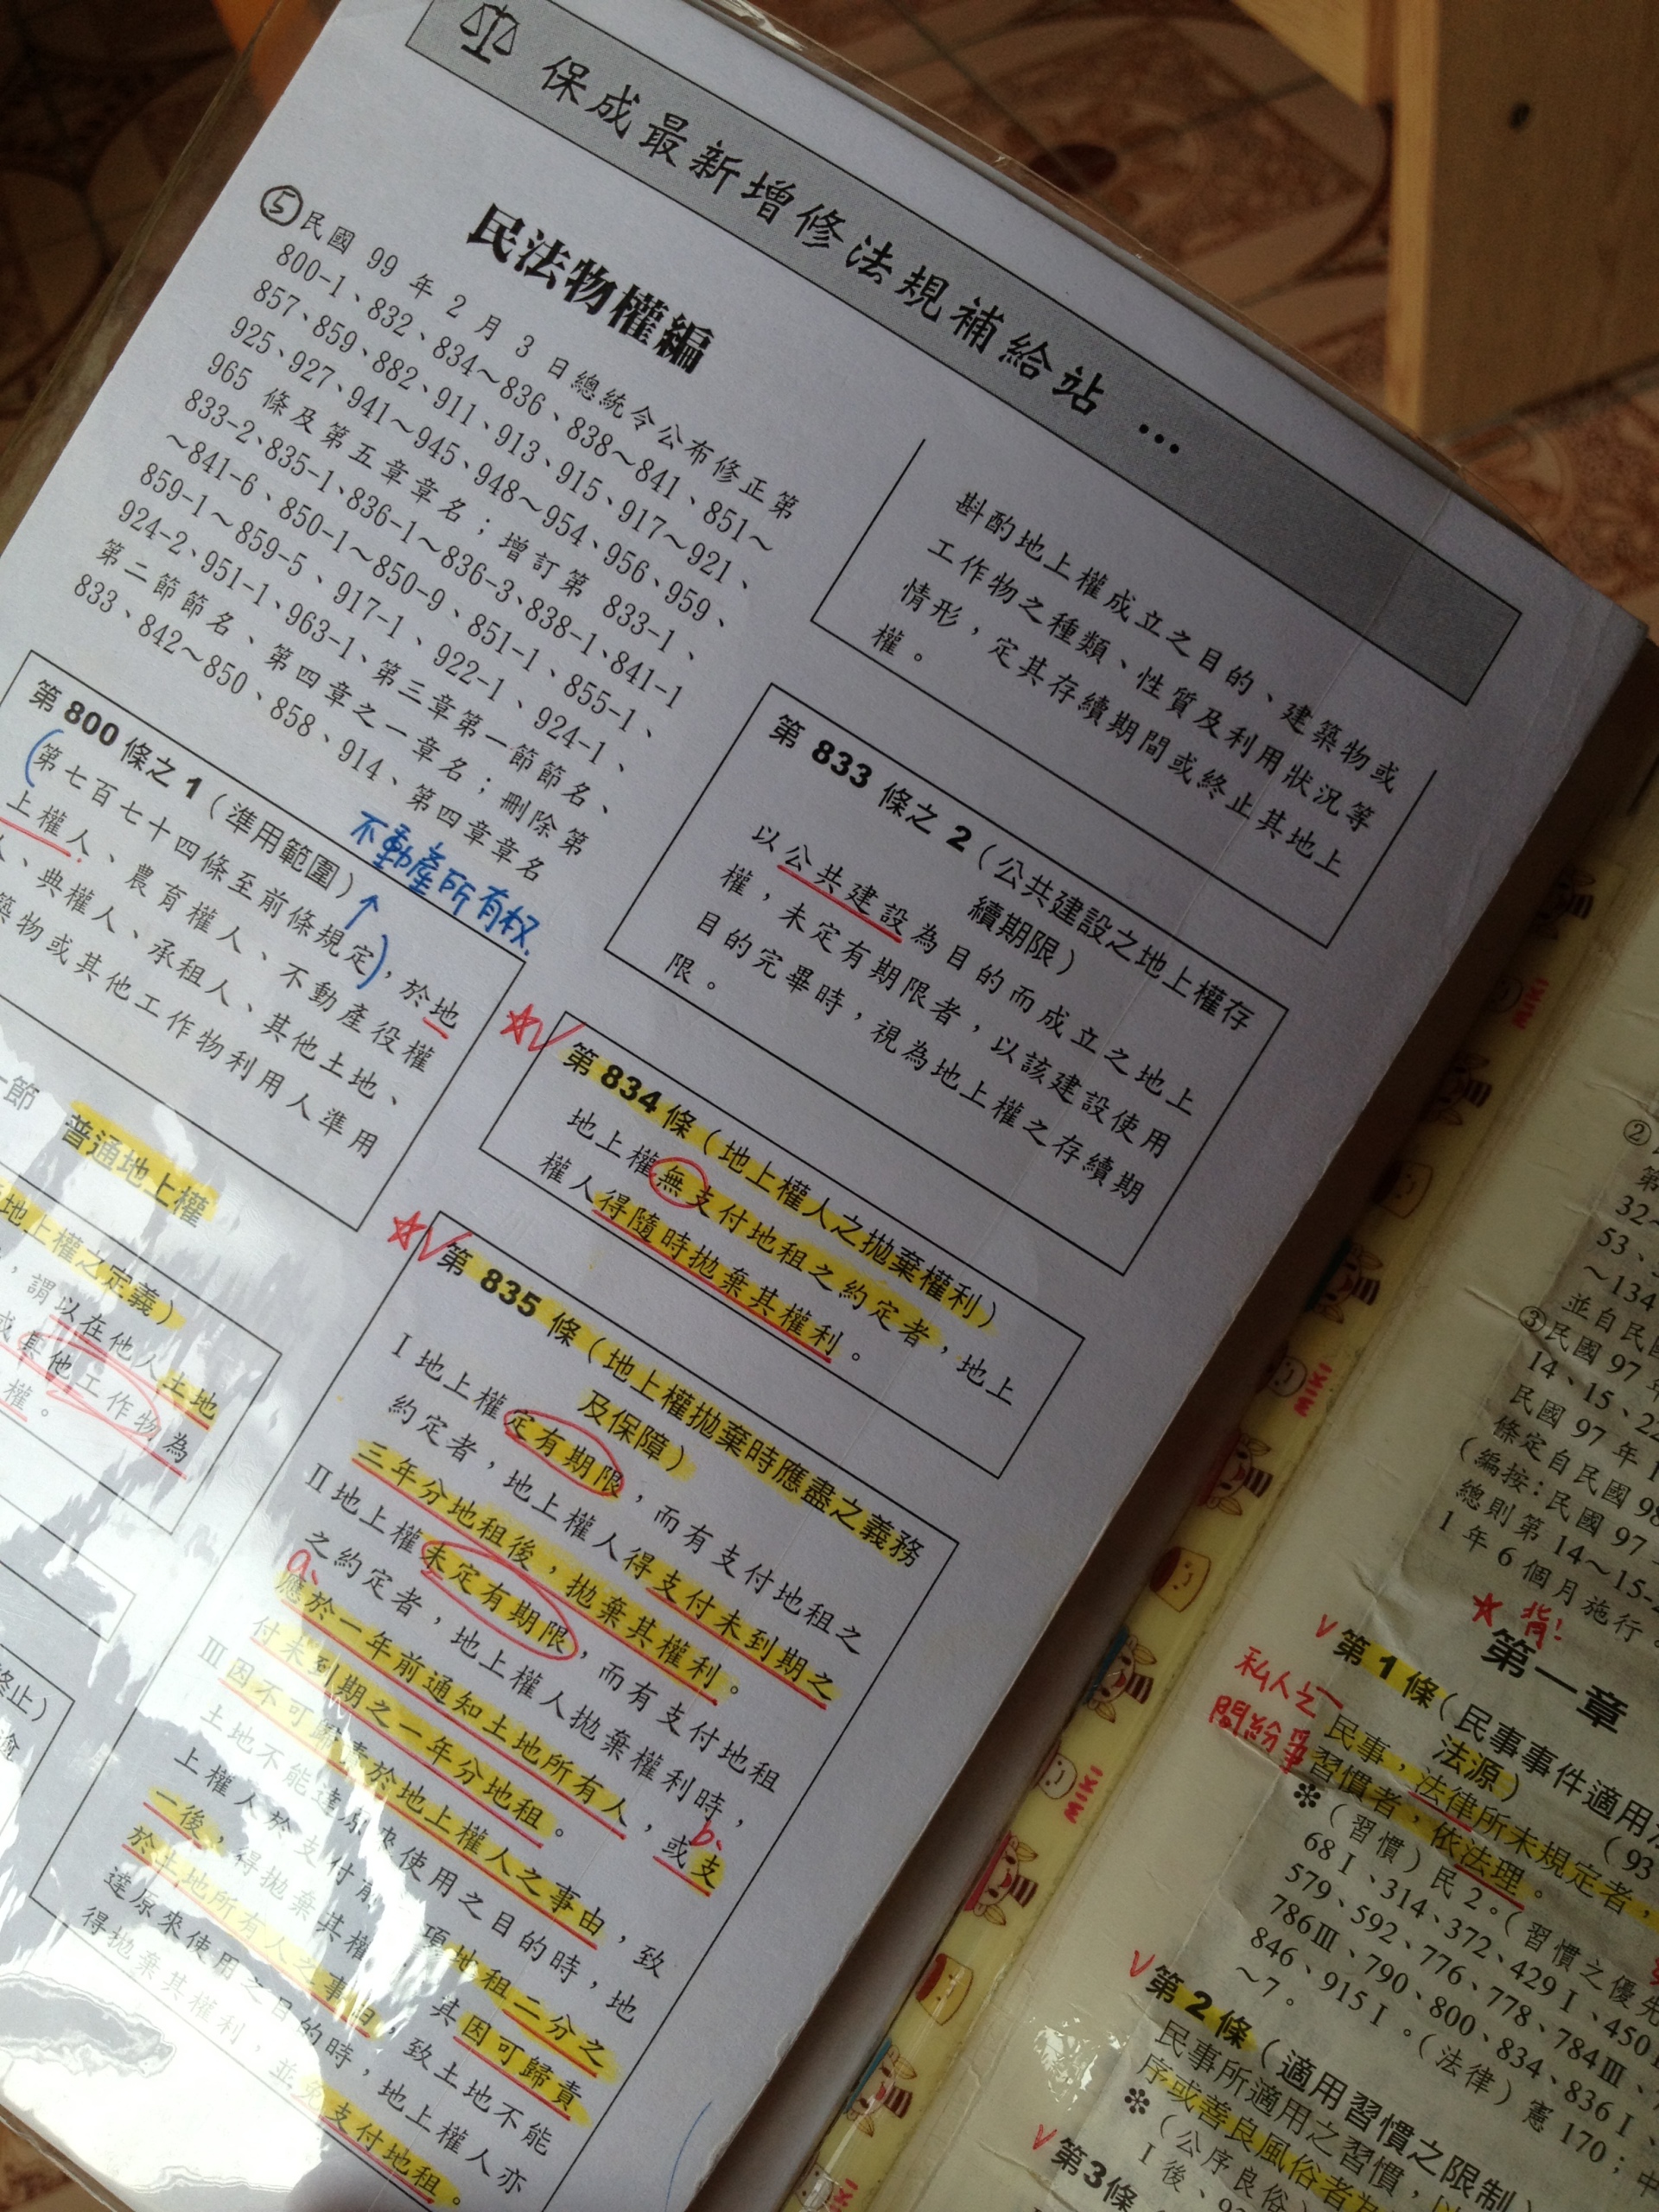 保成最新增修法規補給站…
民法物權編
⑤民國 99 年 2 月 3 日總統令公布修正第
800-1、832、834～836、838～841、851～
857、859、882、911、913、915、917～921、
925、927、941～945、948～954、956、959、
965 條及第五章章名；增訂第 833-1、
833-2、835-1、836-1～836-3、838-1、841-1
～841-6、850-1～850-9、851-1、855-1、
859-1～859-5、917-1、922-1、924-1、
924-2、951-1、963-1、第三章第一節節名、
第二節節名、第四章之一章名；刪除第
833、842～850、858、914、第四章章名
第 800 條之 1（準用範圍）
不動產所有权
（第七百七十四條至前條規定），於地
上權人、農育權人、不動產役權
人、典權人、承租人、其他土地、
築物或其他工作物利用人準用
一節 普通地上權
地上權之定義）
，謂以在他人土地
或其他工作物為
權。
終止）
斟酌地上權成立之目的、建築物或
工作物之種類、性質及利用狀況等
情形，定其存續期間或終止其地上
權。
第 833 條之 2（公共建設之地上權存
續期限）
以公共建設為目的而成立之地上
權，未定有期限者，以該建設使用
目的完畢時，視為地上權之存續期
限。
第 834 條（地上權人之拋棄權利）
地上權無支付地租之約定者，地上
權人得隨時拋棄其權利。
第 835 條（地上權拋棄時應盡之義務
及保障）
Ⅰ地上權定有期限，而有支付地租之
約定者，地上權人得支付未到期之
三年分地租後，拋棄其權利。
Ⅱ地上權未定有期限，而有支付地租
之約定者，地上權人拋棄權利時，
a.
應於一年前通知土地所有人，或支
b.
付未到期之一年分地租。
Ⅲ因不可歸責於地上權人之事由，致
土地不能達原來使用之目的時，地
上權人於支付前項地租二分之
一後，得拋棄其權 其因可歸責
於土地所有人之事由，致土地不能
達原來使用之目的時，地上權人亦
得拋棄其權利，並免支付地租。
②
第
32～
53、
～134
並自民國
③民國 97 年
14、15、22
民國 97 年 1
條定自民國 98
（編按：民國 97
總則第 14～15-2
1 年 6 個月施行。
背!
第一章
第 1 條（民事事件適用
法源）
（93
私人之
間紛爭
民事，法律所未規定者，
習慣者，依法理。
（習慣）民 2。（習慣之優先
68Ⅰ、314、372、429Ⅰ、450
579、592、776、778、784Ⅲ、
786Ⅲ、790、800、834、836Ⅰ、
846、915Ⅰ。（法律）憲 170；中
～7。
第 2 條（適用習慣之限制）
民事所適用之習慣，以
序或善良風俗者為
（公序良俗）
Ⅰ後、
第3條
MIKI
MIKI
MIKI